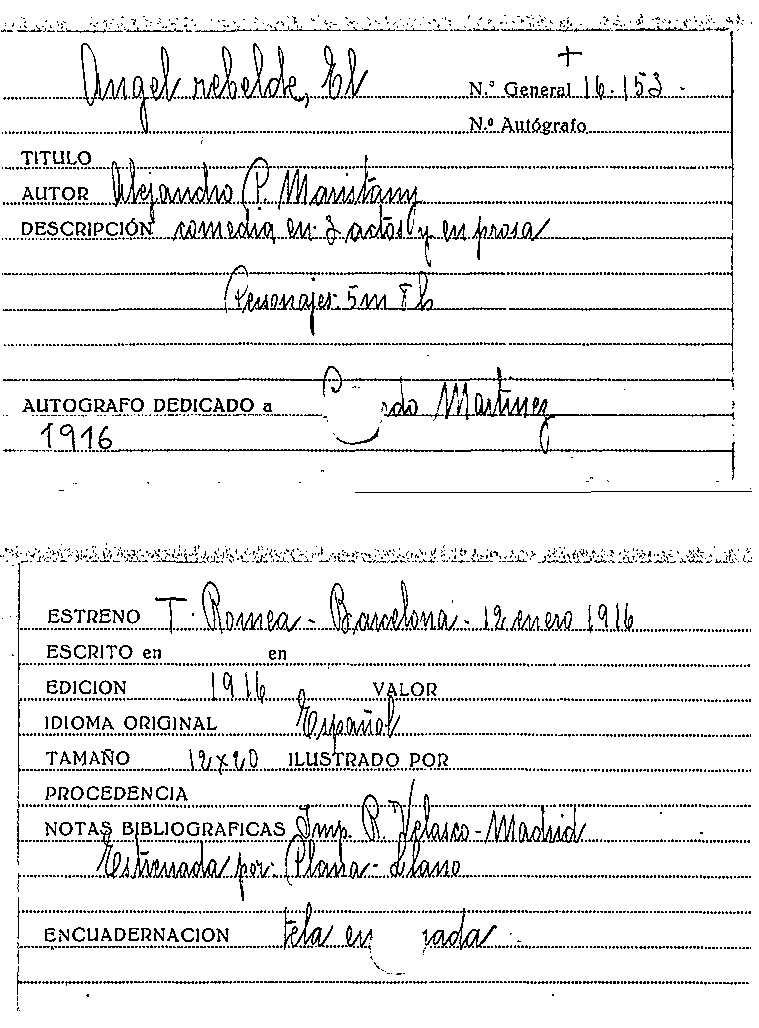 Angel rebelde, El
+
N.º General 16.153.
N.º Autógrafo
TITULO
AUTOR Alejandro P. Maristany
DESCRIPCIÓN comedia en 3 actos y en prosa
Personajes: 5m 8h
AUTOGRAFO DEDICADO a Martinez
1916
ESTRENO T. Romea - Barcelona - 12 enero 1916
ESCRITO en en
EDICION 1916 VALOR
IDIOMA ORIGINAL Español
TAMAÑO 12x20 ILUSTRADO POR
PROCEDENCIA
NOTAS BIBLIOGRAFICAS Imp. R. Velasco - Madrid
Estrenada por: Plana - Llano
ENCUADERNACION tela